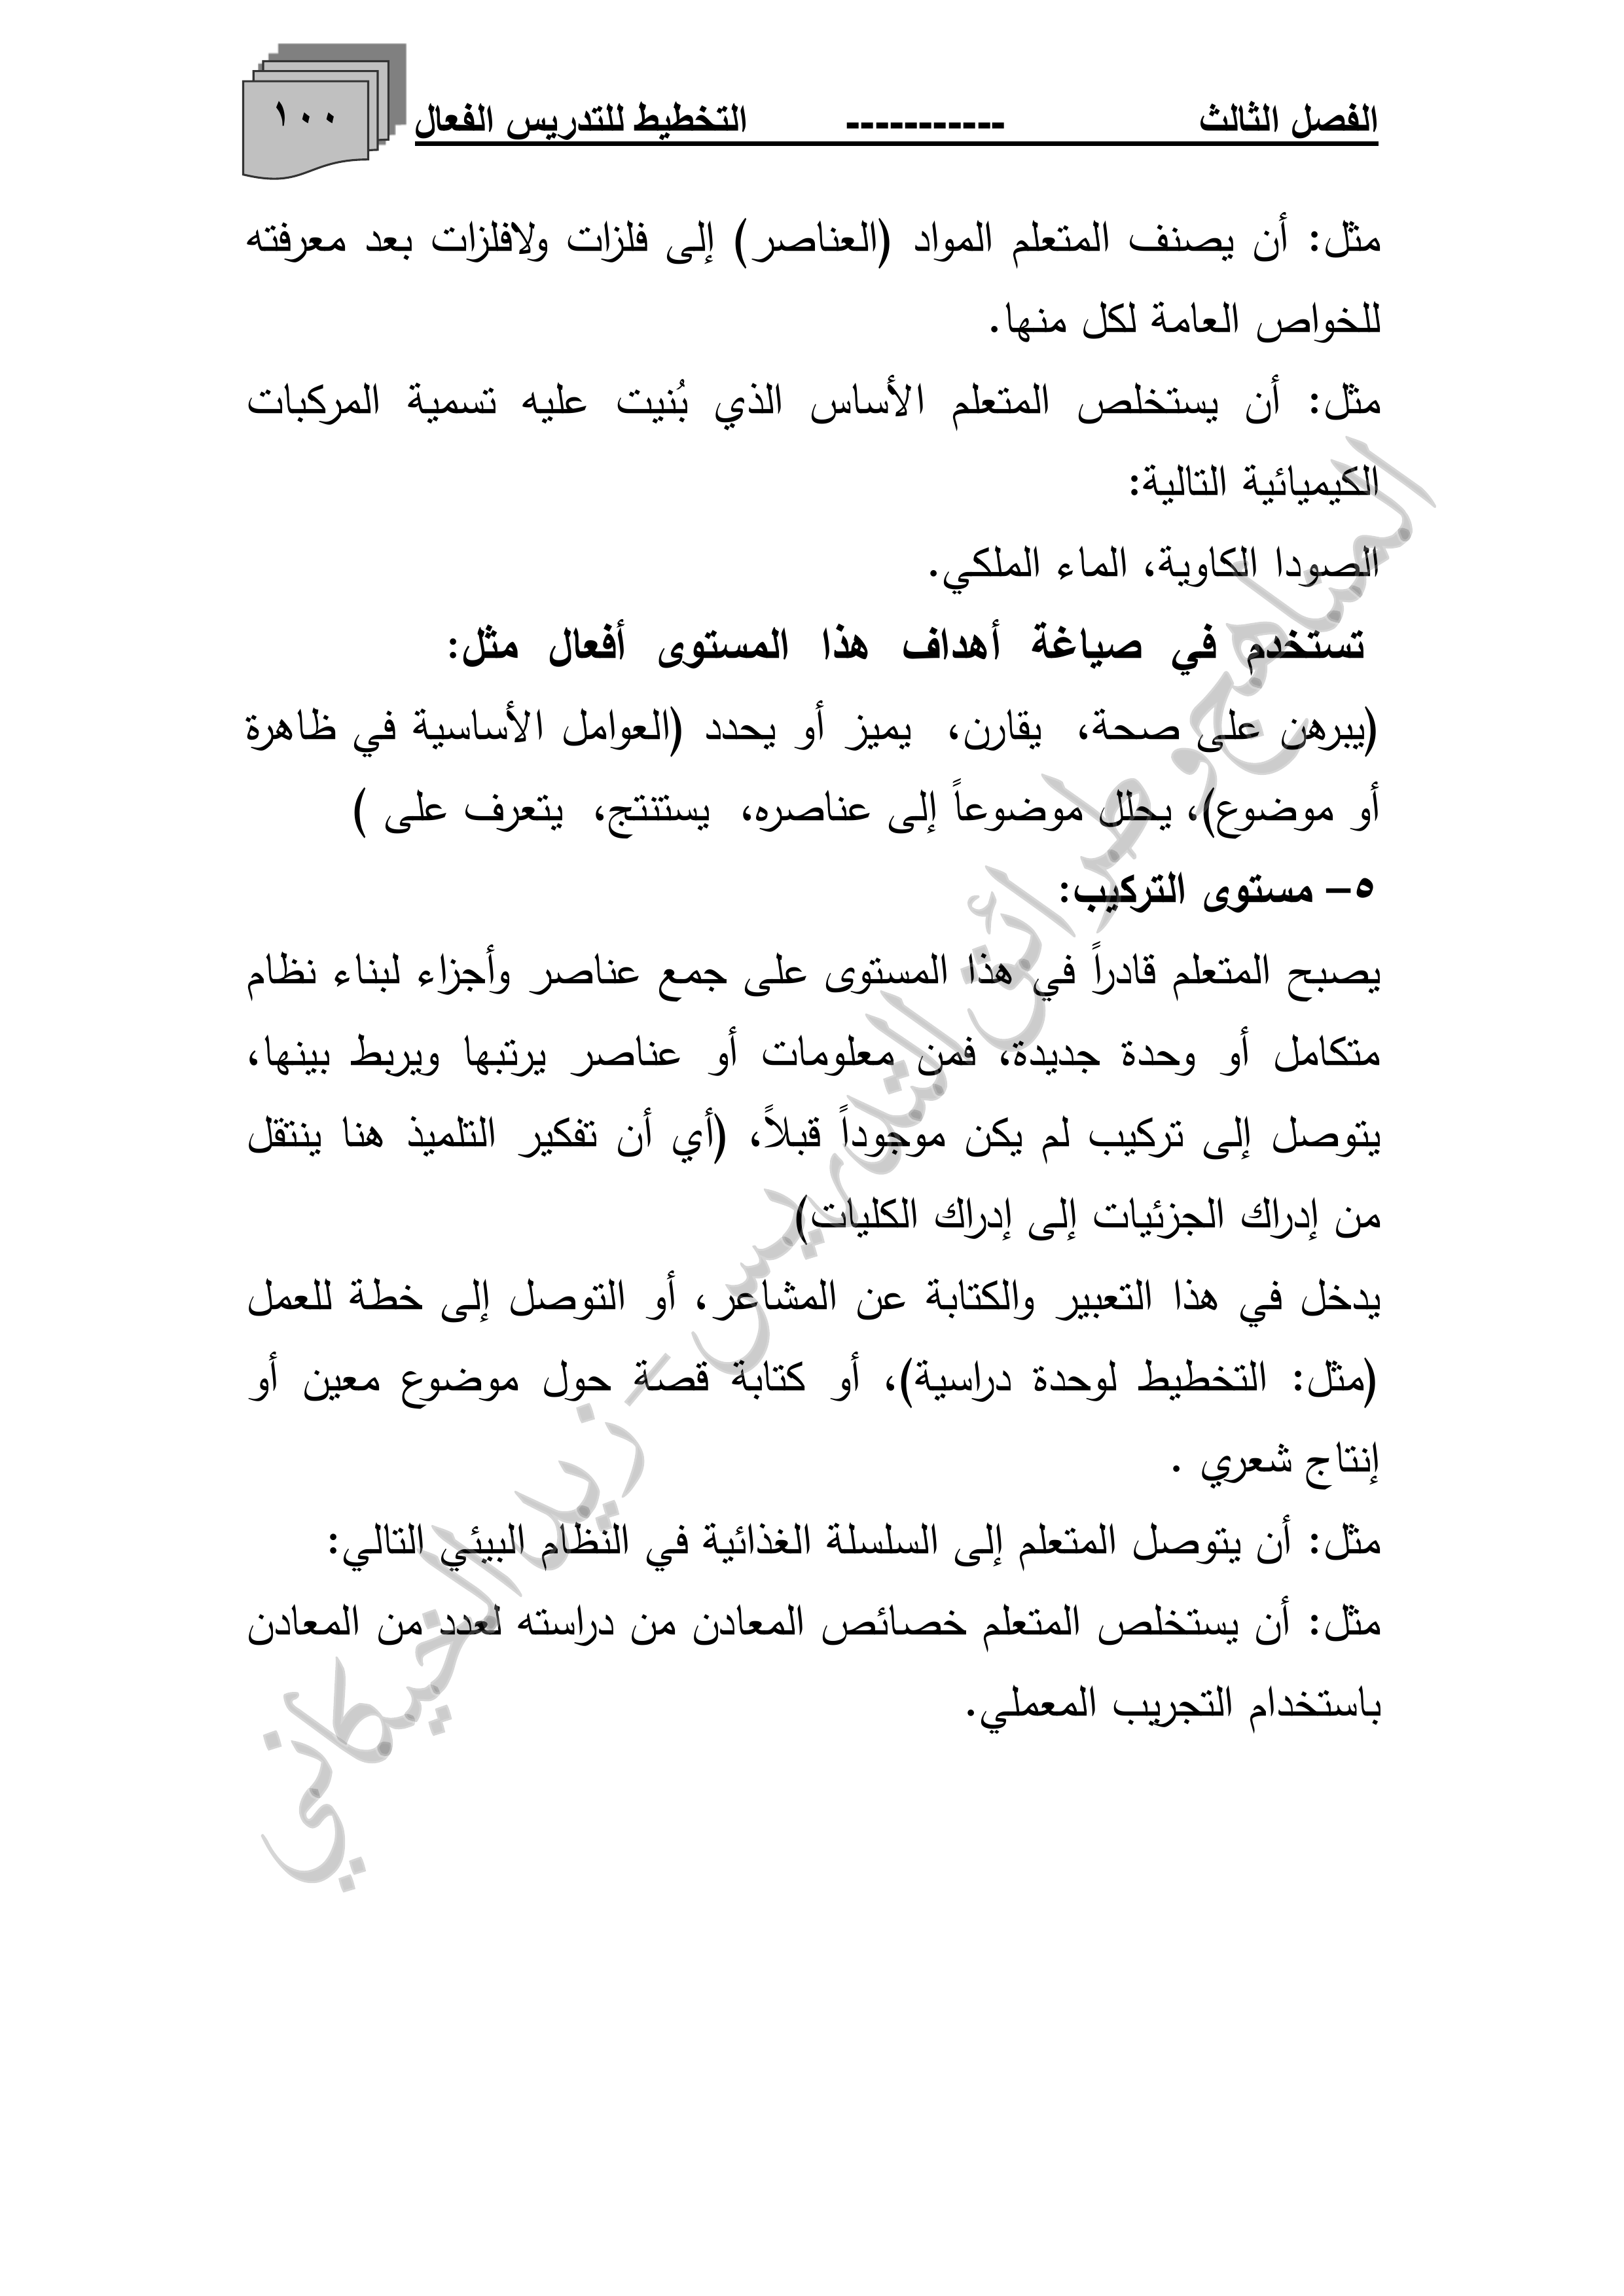 الفصل الثالث ----------- التخطيط للتدريس الفعال ١٠٠
مثل: أن يصنف المتعلم المواد (العناصر) إلى فلزات ولافلزات بعد معرفته
للخواص العامة لكل منها.
مثل: أن يستخلص المتعلم الأساس الذي بُنيت عليه تسمية المركبات
الكيميائية التالية:
الصودا الكاوية، الماء الملكي.
تستخدم في صياغة أهداف هذا المستوى أفعال مثل:
(يبرهن على صحة، يقارن، يميز أو يحدد (العوامل الأساسية في ظاهرة
أو موضوع)، يحلل موضوعاً إلى عناصره، يستنتج، يتعرف على )
٥- مستوى التركيب:
يصبح المتعلم قادراً في هذا المستوى على جمع عناصر وأجزاء لبناء نظام
متكامل أو وحدة جديدة، فمن معلومات أو عناصر يرتبها ويربط بينها،
يتوصل إلى تركيب لم يكن موجوداً قبلاً، (أي أن تفكير التلميذ هنا ينتقل
من إدراك الجزئيات إلى إدراك الكليات)
يدخل في هذا التعبير والكتابة عن المشاعر، أو التوصل إلى خطة للعمل
(مثل: التخطيط لوحدة دراسية)، أو كتابة قصة حول موضوع معين أو
إنتاج شعري .
مثل: أن يتوصل المتعلم إلى السلسلة الغذائية في النظام البيئي التالي:
مثل: أن يستخلص المتعلم خصائص المعادن من دراسته لعدد من المعادن
باستخدام التجريب المعملي.
المناهج وطرائق التدريس - زيد الخيكاني